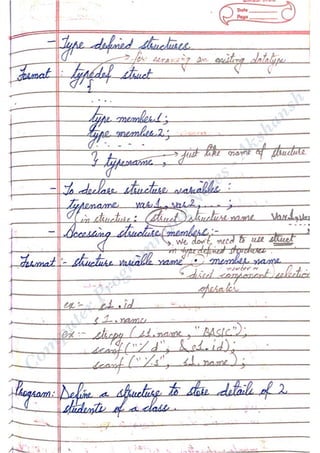 Date
Page
- Type defined structures
→ for renaming an existing datatype
Format : typedef struct
{
....
type member1;
type member2;
} typename; → just like name of structure
- To declare structure variables :
typename var1, var2, ...;
in structure: (struct) structure name var1, var
- Accessing structure members:-
, we don't need to use struct
in type defined structures
Format :- structure variable name . member name
member
direct component selection
operator
ex:- s1.id
s1.name
ex:- strcpy (s1.name, "BASIC");
scanf ("%d", &s1.id);
scanf ("%s", s1.name);
Program: Define a structure to store details of 2
students of a class.
Computer Programming Akshansh